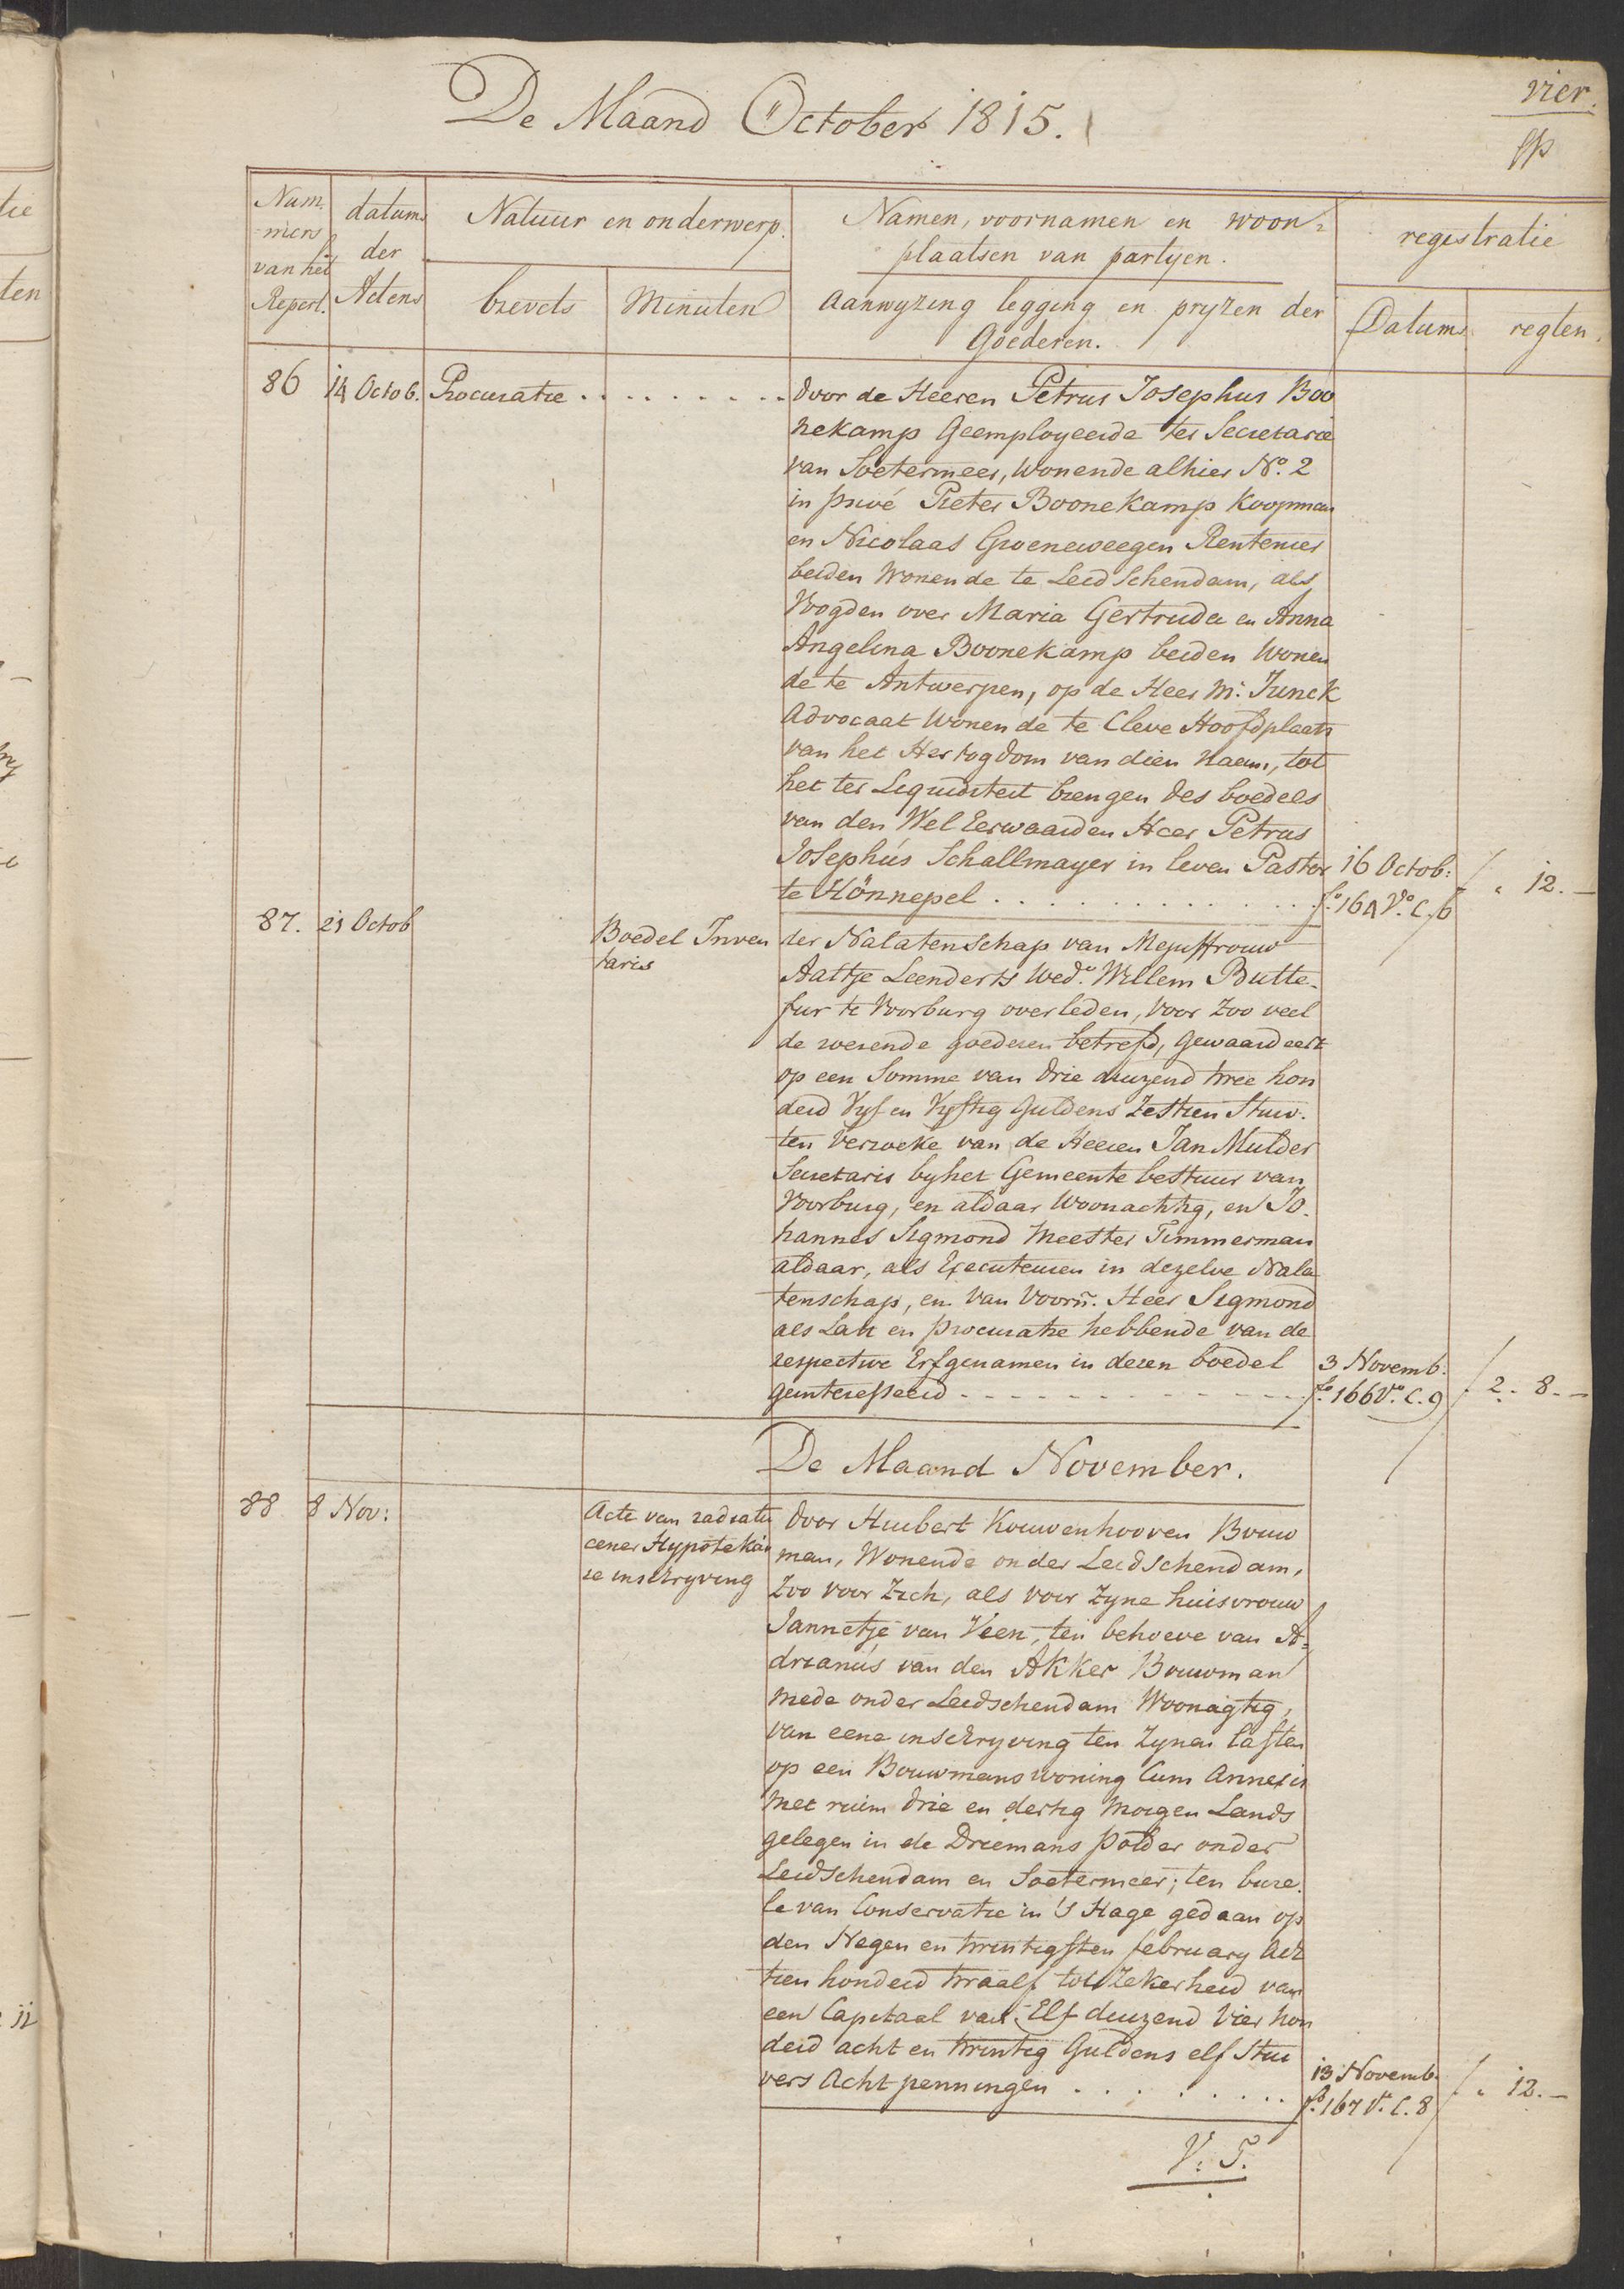 vier.
De Maand October 1815.
Num-
mers
van het
Repert.
datums
der
Actens
Natuur en onderwerp.
brevets
Minuten
Namen, voornamen en woon-
plaatsen van partyen.
Aanwyzing legging en pryzen der
Goederen.
registratie
Datums
regten.
86
14 Octob.
Procuratie . . . . . . . . .
door de Heeren Petrus Josephus Boo
nekamp Geemployeerde ter Secretarie
van Soetermeer, Wonende alhier No. 2
in privé Pieter Boonekamp Koopman
en Nicolaas Groeneweegen Rentenier
beiden Wonende te Leidschendam, als
Voogden over Maria Gertruda en Anna
Angelina Boonekamp beiden Wonen
de te Antwerpen, op de Heer Mr. Junck
Advocaat Wonende te Cleve Hoofdplaats
van het Hertogdom van dien naam, tot
het ter Liquiditeit brengen des boedels
van den Wel Eerwaarden Heer Petrus
Josephús Schallmayer in leven Pastor
te Hönnepel . . . . . . . . . . . .
16 Octob:
fo. 164 Vo. C. 6
" 12. —
87.
21 Octob
Boedel Inven
taris
der Nalatenschap van Mejuffrouw
Aaltje Leenderts Wedo. Willem Butte-
fur te Voorburg overleden, voor zoo veel
de roerende goederen betrefd, Gewaardeert
op een Somme van drie duizend twee hon
derd Vyf en Vyftig Guldens Zestien Stuiv.
ten Verzoeke van de Heeren Jan Mulder
Secretaris by het Gemeente bestuur van
Voorburg, en aldaar Woonachtig, en Jo-
hannes Sigmond Meester Timmerman
aldaar, als Executeuren in dezelve Nala
tenschap, en van Voorn. Heer Sigmond
als Last en procuratie hebbende van de
respective Erfgenamen in dezen boedel
geinteresseerd - - - - - - - - - - -
3 Novemb.
fo. 166 Vo. C. 9
2. 8. —
De Maand November.
88
8 Nov:
Acte van radiatie
eener Hypotekai
re inschryving
door Huibert Kouwenhooven Bouw
man, Wonende onder Leidschendam,
Zoo voor Zich, als voor Zyne huisvrouw
Jannetje van Veen, ten behoeve van A-
drianús van den Akker Bouwman
mede onder Leidschendam Woonagtig,
van eene inschryving ten Zynen lasten
op een Bouwmans woning Cum Annexis
met ruim drie en dertig Morgen Lands
gelegen in de Driemans polder onder
Leidschendam en Soetermeer; ten bure-
le van Conservatie in 's Hage gedaan op
den Negen en twintigsten february Acht
tien honderd twaalf tot Zekerheid van
een Capitaal van Elf duizend Vier hon
derd acht en twintig Guldens elf Stui
vers Acht penningen . . . . . . . . .
13 Novemb.
fo. 167 Vo. C. 8
" 12. —
V. T.